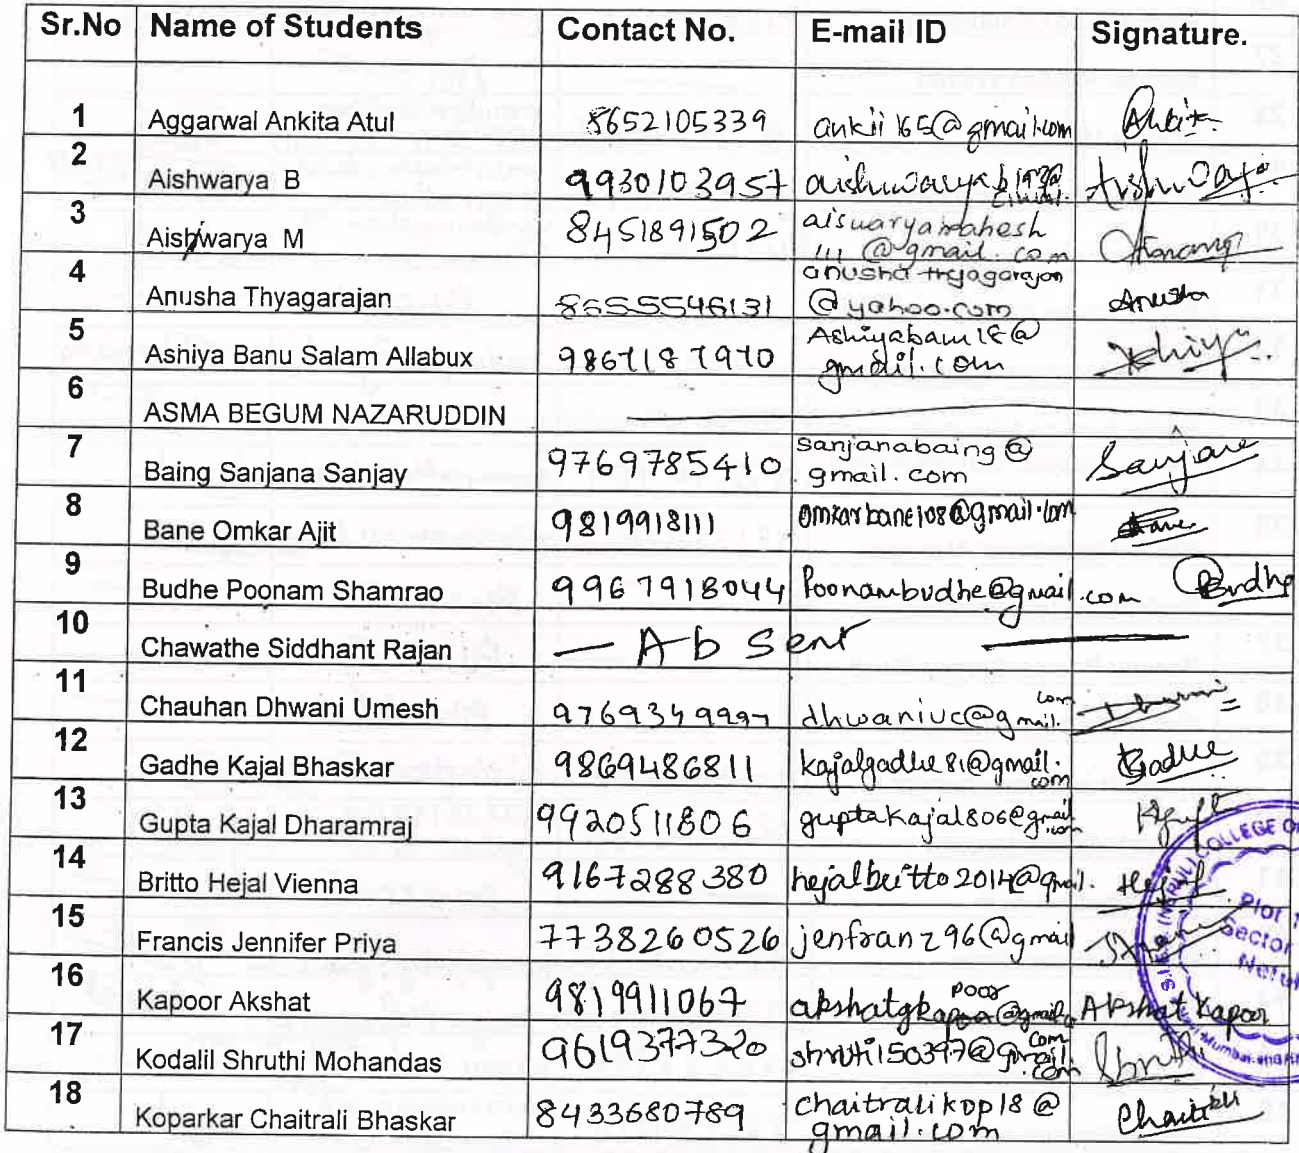 Sr.No Name of Students Contact No. E-mail ID Signature.
1 Aggarwal Ankita Atul 8652105339 ankii165@gmail.com Ankita
2 Aishwarya B 9930103957
3 Aishwarya M 8451891502 aiswaryamahesh
111@gmail.com
4 Anusha Thyagarajan 8655546131 anusha thyagarajan
@yahoo.com Anusha
5 Ashiya Banu Salam Allabux 9867187970 Ashiyabanu18@
gmail.com
6 ASMA BEGUM NAZARUDDIN
7 Baing Sanjana Sanjay 9769785410 sanjanabaing@
gmail.com Sanjana
8 Bane Omkar Ajit 9819918111 omkarbane108@gmail.com Bane
9 Budhe Poonam Shamrao 9967918044 Poonambudhe@gmail.com Budhe
10 Chawathe Siddhant Rajan — Absent
11 Chauhan Dhwani Umesh dhwaniuc@gmail.
com
12 Gadhe Kajal Bhaskar 9869486811 kajalgadhe81@gmail.
com Gadhe
13 Gupta Kajal Dharamraj 9920511806 guptakajal806@gmail
.com
14 Britto Hejal Vienna 9167288380 hejalbritto2014@gmail. Hejal
15 Francis Jennifer Priya 7738260526 jenfranz96@gmail
16 Kapoor Akshat 9819911067 akshatgkapoor@gmail.
com Akshat Kapoor
17 Kodalil Shruthi Mohandas 9619377320 shruti150397@gmail.
com Shruthi
18 Koparkar Chaitrali Bhaskar 8433680789 chaitralikop18@
gmail.com Chaitrali
COLLEGE OF
Plot 1
Sector
Nerul